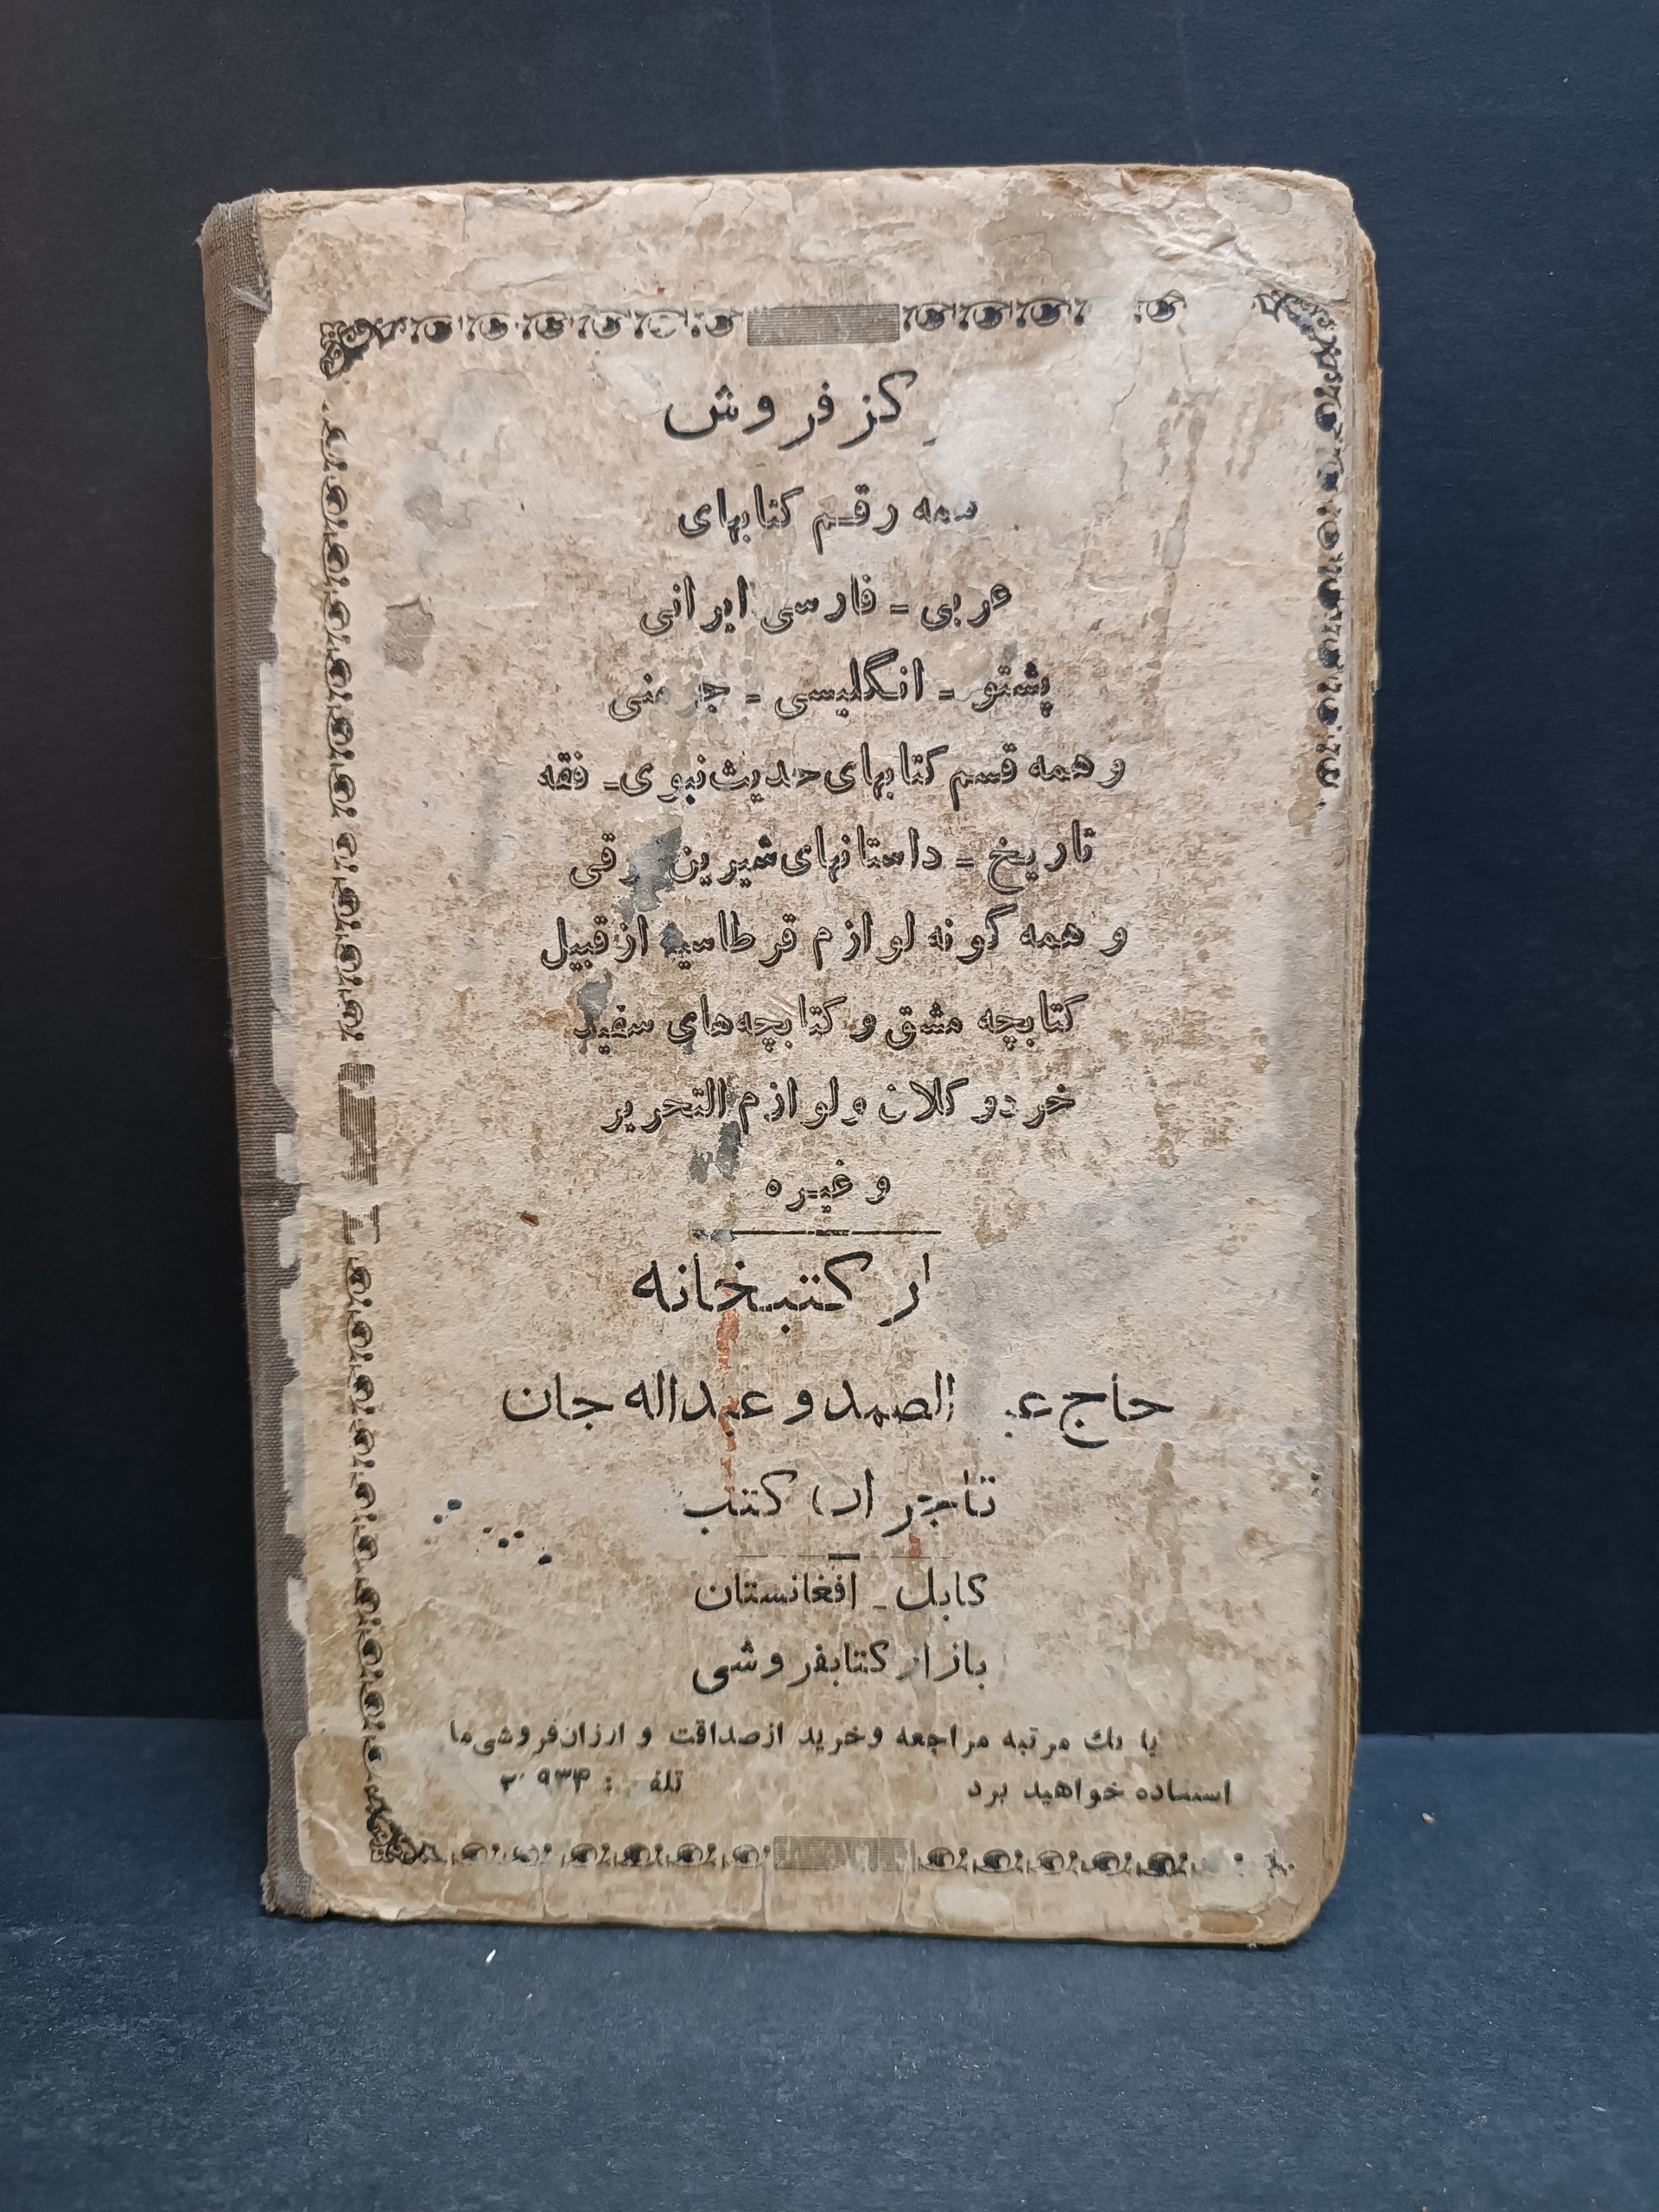 کز فروش
همه رقم کتابهای
عربی - فارسی ایرانی
پشتو - انگلیسی - جرمنی
و همه قسم کتابهای حدیث نبوی - فقه
تاریخ - داستانهای شیرین
و همه گونه لوازم قرطاسیه از قبیل
کتابچه مشق و کتابچه‌های سفید
خرد و کلان و لوازم التحریر
و غیره
از کتبخانه
حاج عبدالصمد و عبداله جان
تاجران کتب
کابل - افغانستان
بازار کتابفروشی
با یک مرتبه مراجعه و خرید از صداقت و ارزان‌فروشی ما
استفاده خواهید برد